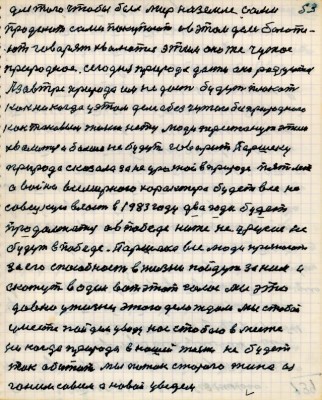 для того чтобы был мир на земле сами 53
продают сами покупают а в этом деле боготи-
ют говорят хвалются этим оно же чужое
природное. сегодня природа дала она радуются
А завтра природа им не даст будут плакат
как никогда у этом деле без чужого бы природного
как такового жизни нету люди перестанут этим
хвалится и больше не будут говорит Паршеку
природа сказала за не урожай в природе пят лет
а война всемирного характера будет все но
советскую власт в 1983 году два года будет
продолжать а в победе ните не другие не
будут в победе. Паршека все люди
за его способность в жизни пойдут за ним и
скажут в один вот этот голос мы это
давно у жизни этого дела ждали мы с тобой
вместе пойдем уведу нас с тобою в месте
ни когда природа в нашей жизни не будет
так обижат мы поток старого типа из
гоним совсем а новой уведем